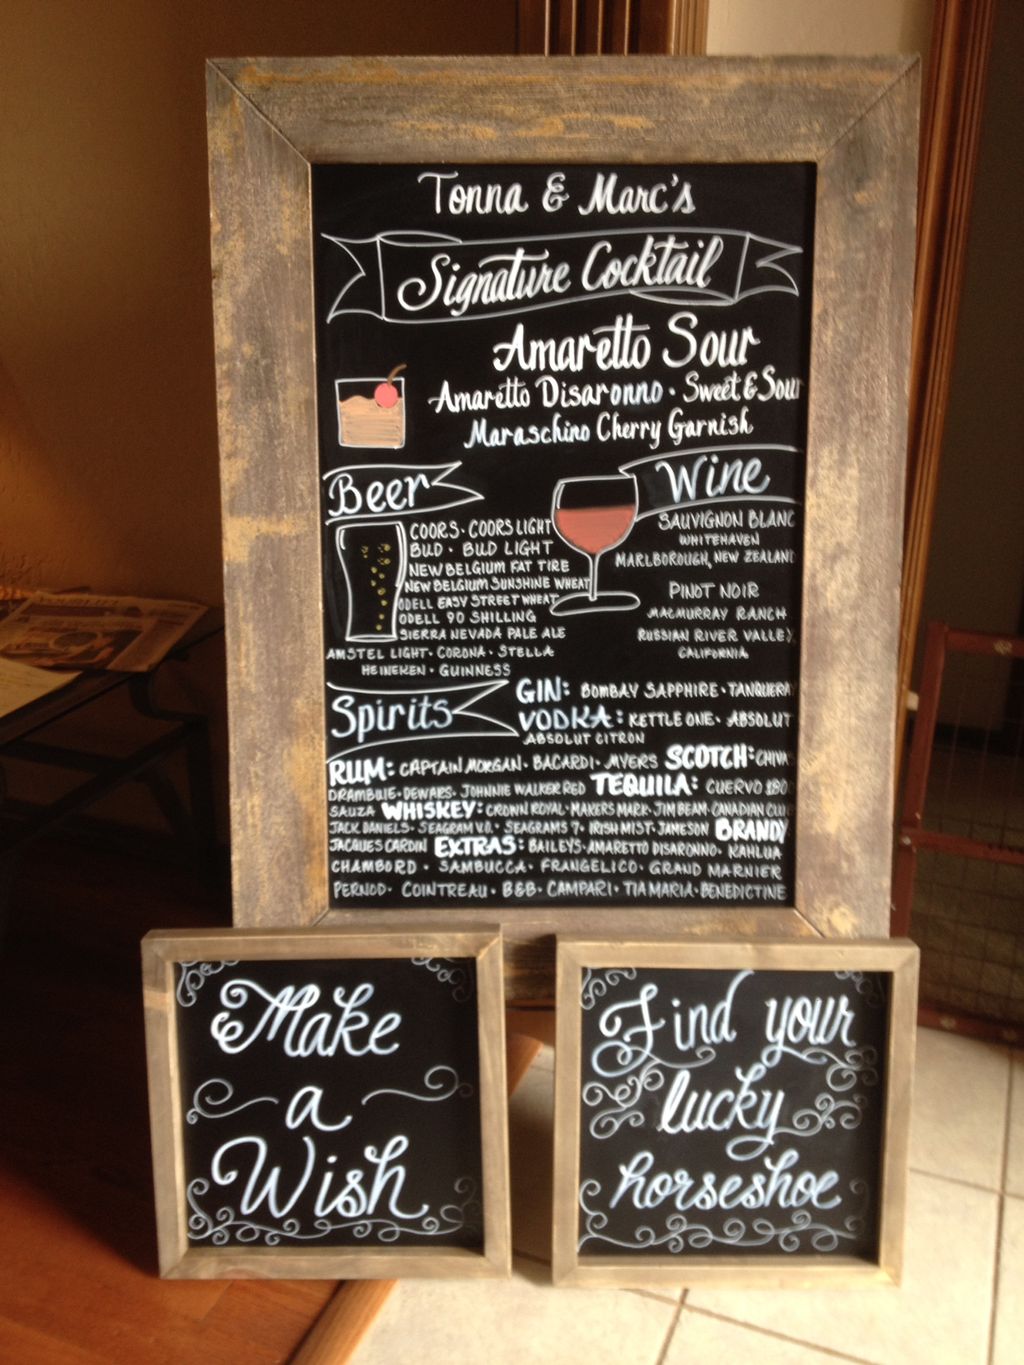 Tonna & Marc's
Signature Cocktail
Amaretto Sour
Amaretto Disaronno · Sweet & Sour
Maraschino Cherry Garnish
Beer
COORS · COORS LIGHT
BUD · BUD LIGHT
NEW BELGIUM FAT TIRE
NEW BELGIUM SUNSHINE WHEAT
ODELL EASY STREET WHEAT
ODELL 90 SHILLING
SIERRA NEVADA PALE ALE
AMSTEL LIGHT · CORONA · STELLA
HEINEKEN · GUINNESS
Wine
SAUVIGNON BLANC
WHITEHAVEN
MARLBOROUGH, NEW ZEALAND
PINOT NOIR
MACMURRAY RANCH
RUSSIAN RIVER VALLEY,
CALIFORNIA
Spirits
GIN: BOMBAY SAPPHIRE · TANQUERA
VODKA: KETTLE ONE · ABSOLUT
ABSOLUT CITRON
RUM: CAPTAIN MORGAN · BACARDI · MYERS SCOTCH: CHIVA
DRAMBUIE · DEWARS · JOHNNIE WALKER RED TEQUILA: CUERVO 180
SAUZA WHISKEY: CROWN ROYAL · MAKERS MARK · JIM BEAM · CANADIAN CLU
JACK DANIELS · SEAGRAM V.O. · SEAGRAMS 7 · IRISH MIST · JAMESON BRANDY
JACQUES CARDIN EXTRAS: BAILEYS · AMARETTO DISARONNO · KAHLUA
CHAMBORD · SAMBUCCA · FRANGELICO · GRAND MARNIER
PERNOD · COINTREAU · B&B · CAMPARI · TIA MARIA · BENEDICTINE
Make
a
Wish
Find your
lucky
horseshoe